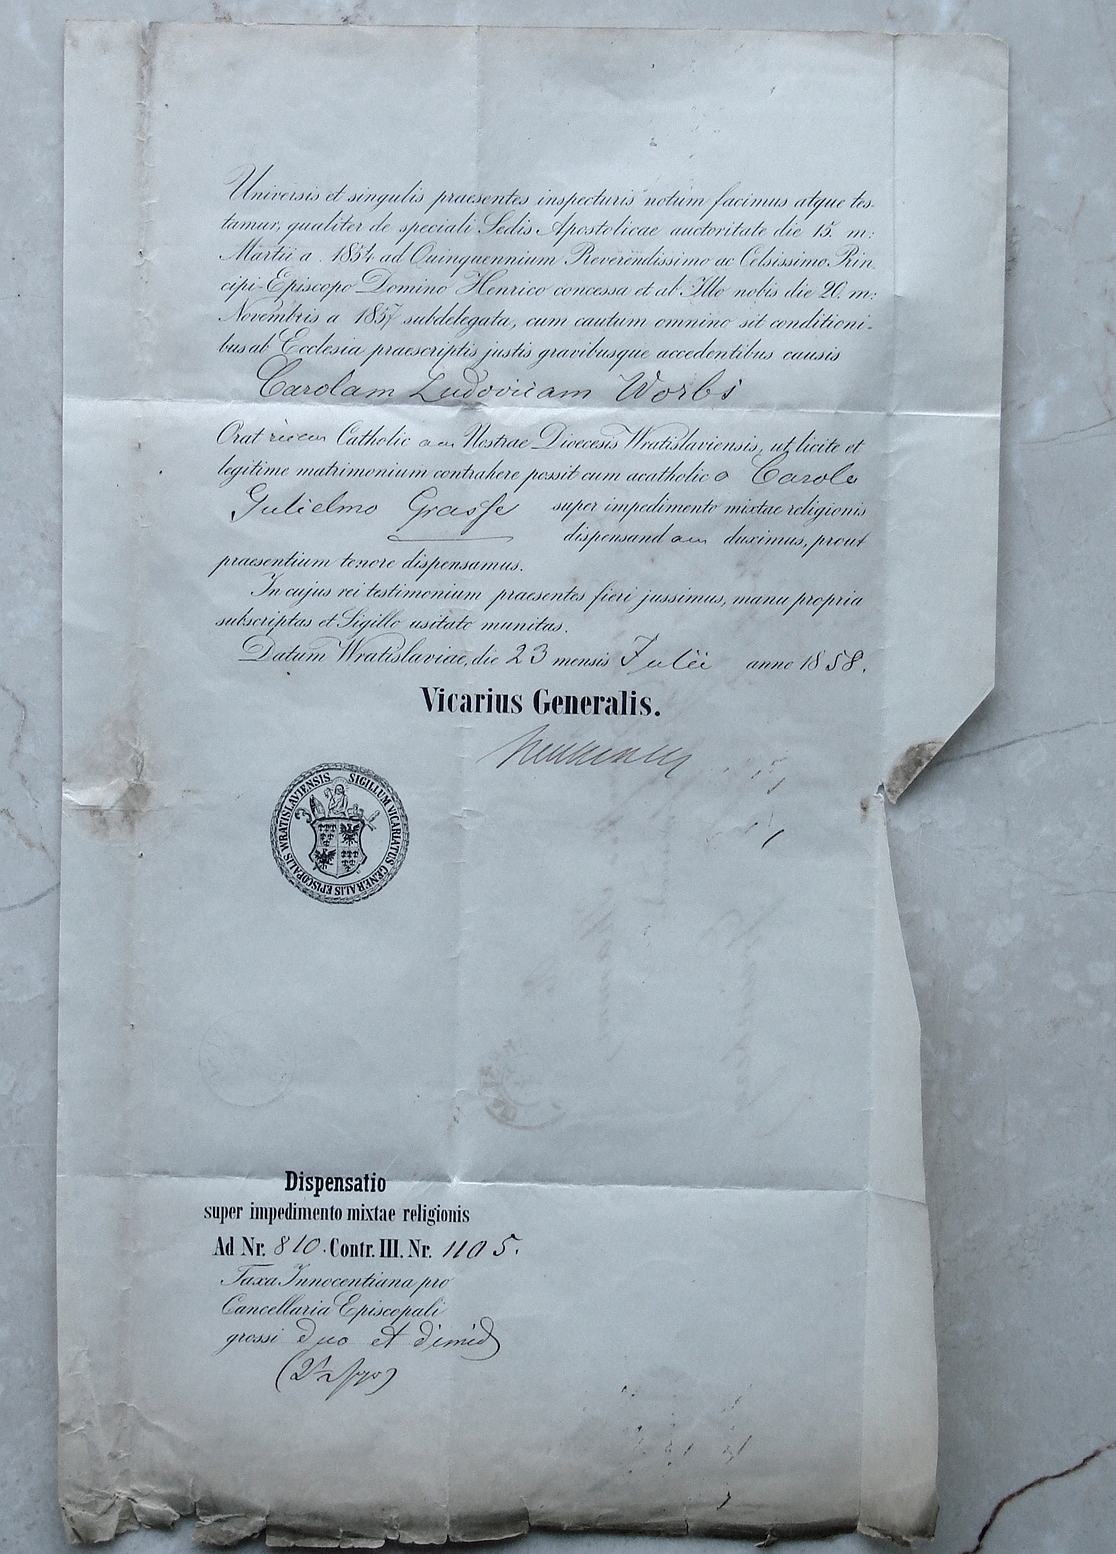 Universis et singulis praesentes inspecturis notum facimus atque tes-
tamur, qualiter de speciali Sedis Apostolicae auctoritate die 15. m:
Martii a. 1854 ad Quinquennium Reverendissimo ac Celsissimo Prin-
cipi-Episcopo Domino Henrico concessa et ab Illo nobis die 20. m:
Novembris a 1857 subdelegata, cum cautum omnino sit conditioni-
bus ab Ecclesia praescriptis justis gravibusque accedentibus causis
Carolam Ludovicam Worbs
Oratricem Catholicam Nostrae Dioecesis Wratislaviensis, ut licite et
legitime matrimonium contrahere possit cum acatholico Carolo
Gulielmo Grasse super impedimento mixtae religionis
dispensandam duximus, prout
praesentium tenore dispensamus.
In cujus rei testimonium praesentes fieri jussimus, manu propria
subscriptas et Sigillo usitato munitas.
Datum Wratislaviae, die 23 mensis Julii anno 1858.
Vicarius Generalis.
SIGILLUM VICARIATUS GENERALIS EPISCOPALIS WRATISLAVIENSIS
Dispensatio
super impedimento mixtae religionis
Ad Nr. 810. Contr. III. Nr. 1105.
Taxa Innocentiana pro
Cancellaria Episcopali
grossi duo et dimid
(2½ sgr)